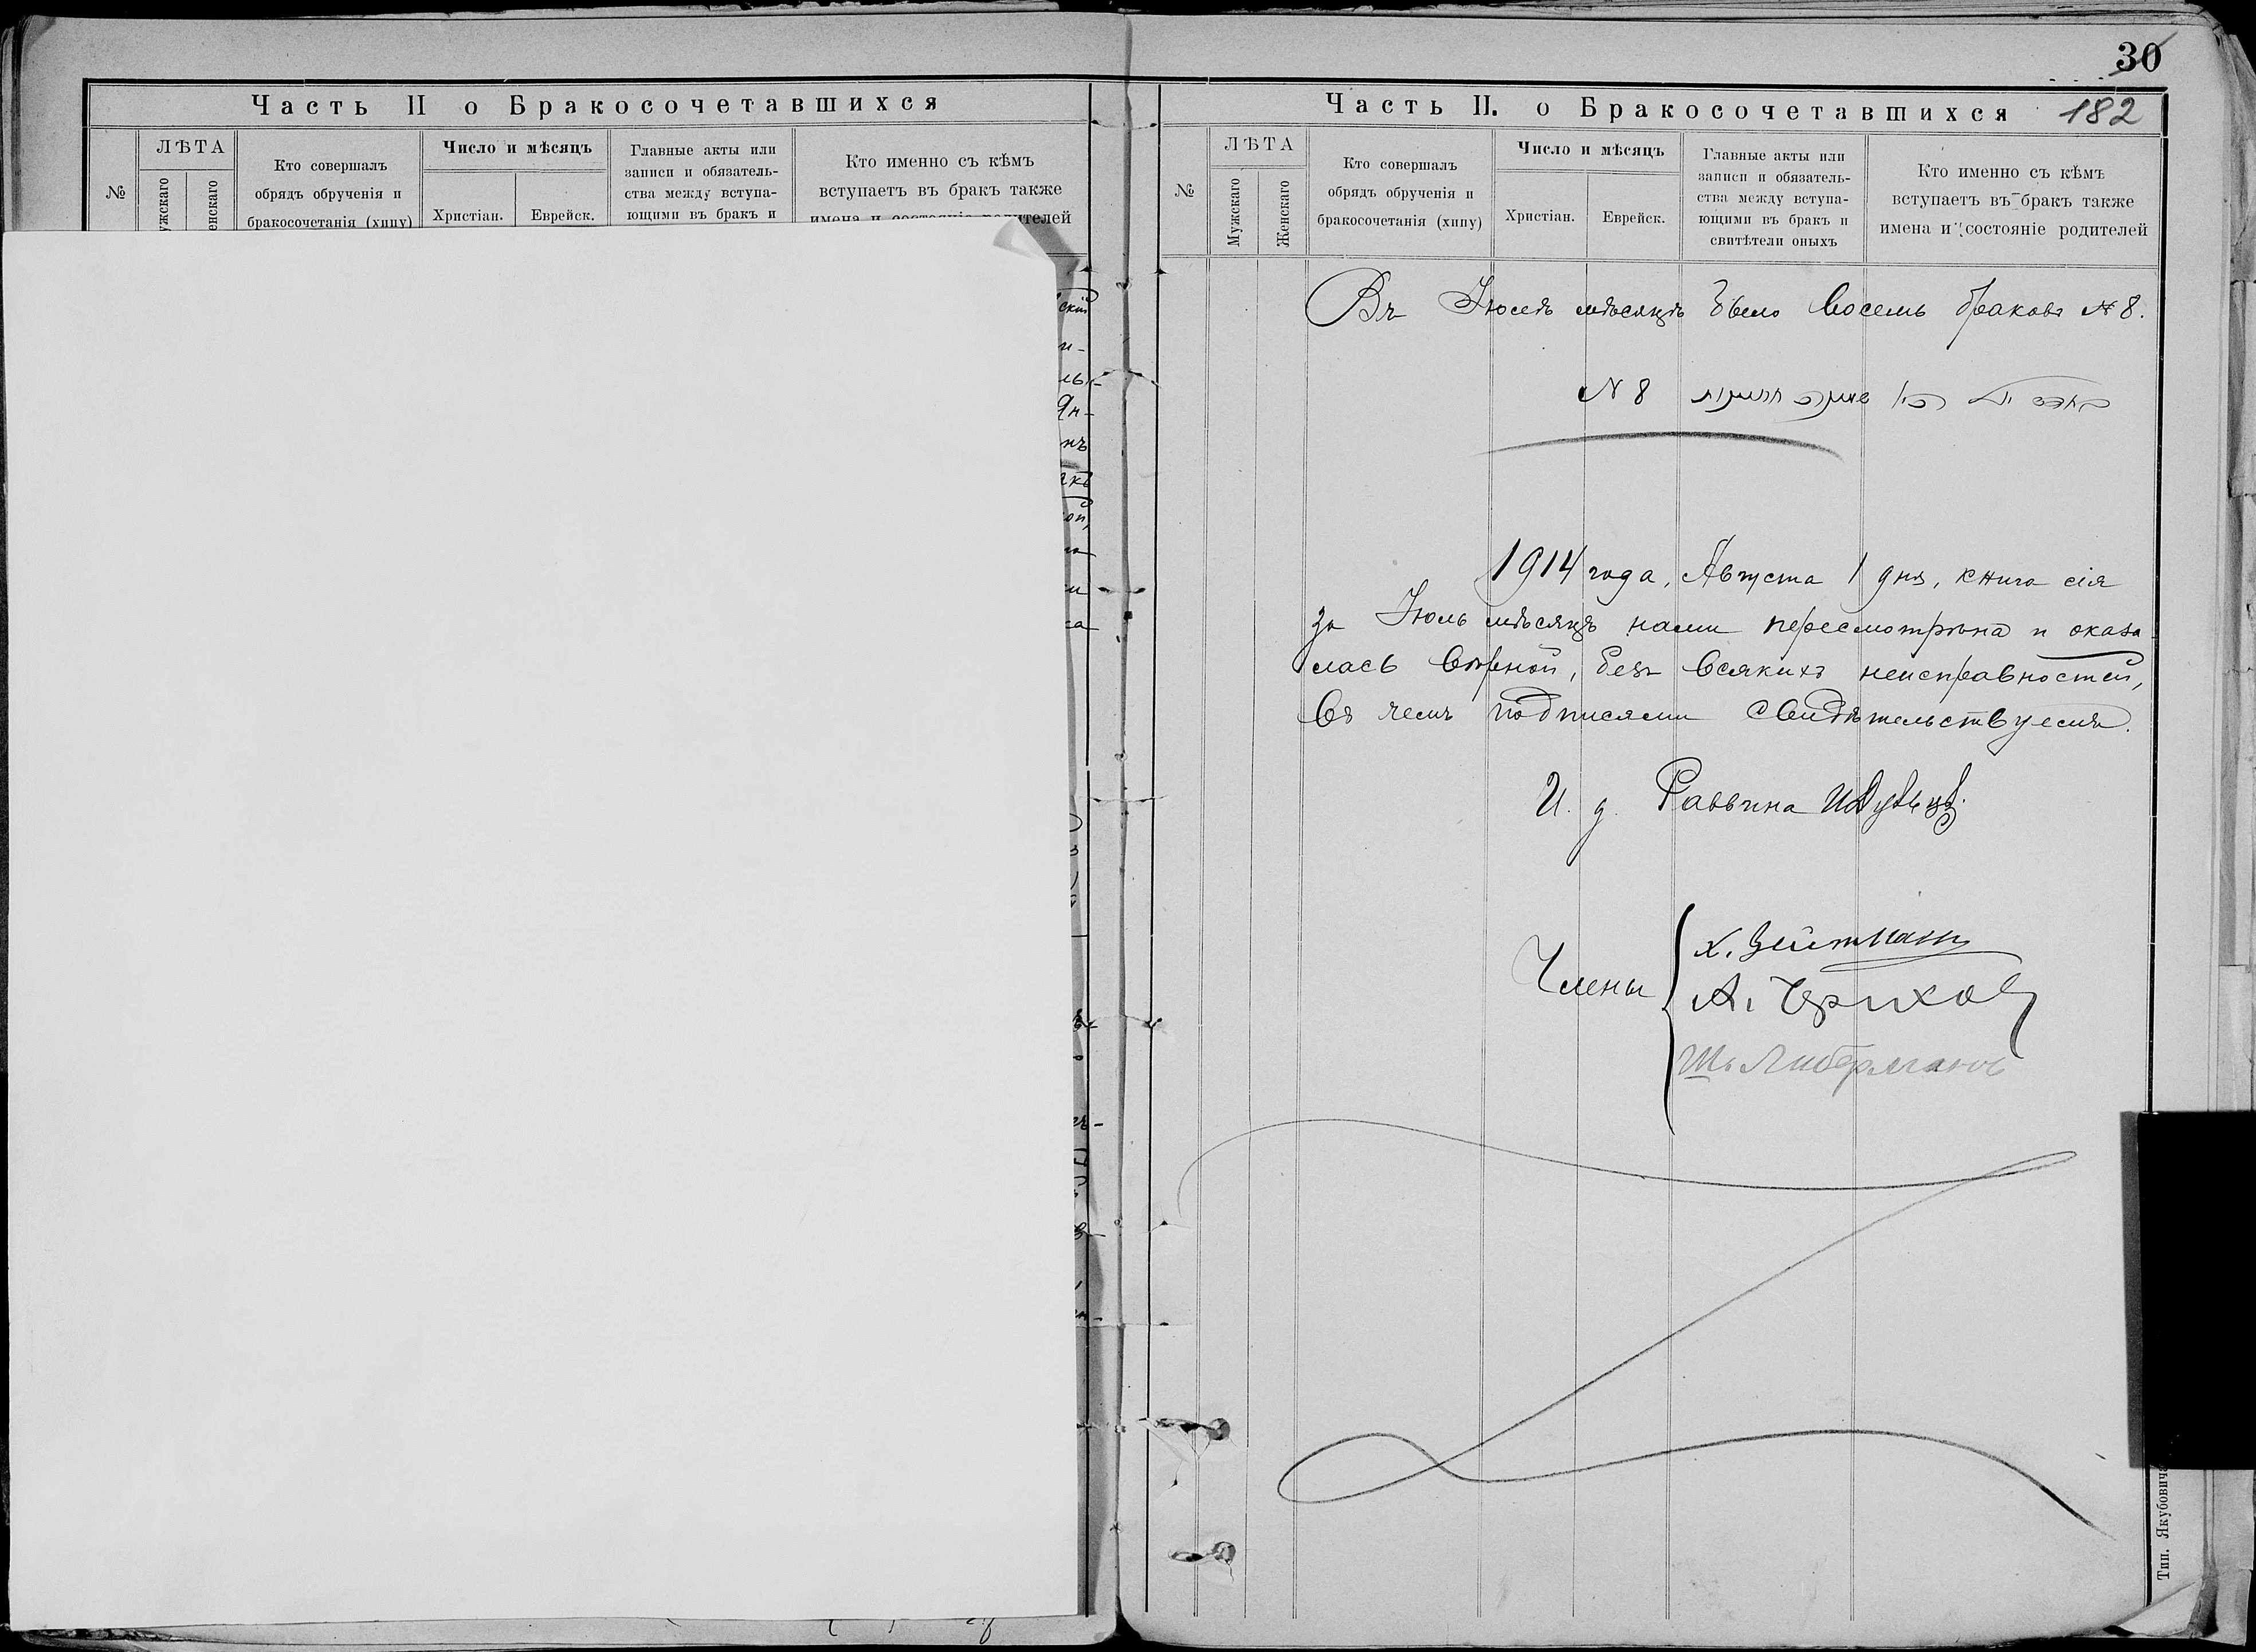 Часть II о Бракосочетавшихся
№
ЛѢТА
Кто совершалъ
обрядъ обрученія и
бракосочетанія (хипу)
Число и мѣсяцъ
Христіан.
Еврейск.
Главные акты или
записи и обязатель-
ства между вступа-
ющими въ бракъ и
Кто именно съ кѣмъ
вступаетъ въ бракъ также
30
182
Часть II. о Бракосочетавшихся
№
ЛѢТА
Мужскаго
Женскаго
Кто совершалъ
обрядъ обрученія и
бракосочетанія (хипу)
Число и мѣсяцъ
Христіан.
Еврейск.
Главные акты или
записи и обязатель-
ства между вступа-
ющими въ бракъ и
свитѣтели оныхъ
Кто именно съ кѣмъ
вступаетъ въ бракъ также
имена и состояніе родителей
Въ Іюлѣ мѣсяцѣ было восемь браковъ № 8.
N 8
1914 года, Августа 1 дня, книга сія
за Іюль мѣсяцъ нами пересмотрѣна и оказа
лась вѣрной, безъ всякихъ неисправностей,
въ чемъ подписями свидѣтельствуемъ.
И. д. Раввина
Члены
Х. Зейтман
А.
Ш. Либерманъ
Тип. Якубовича